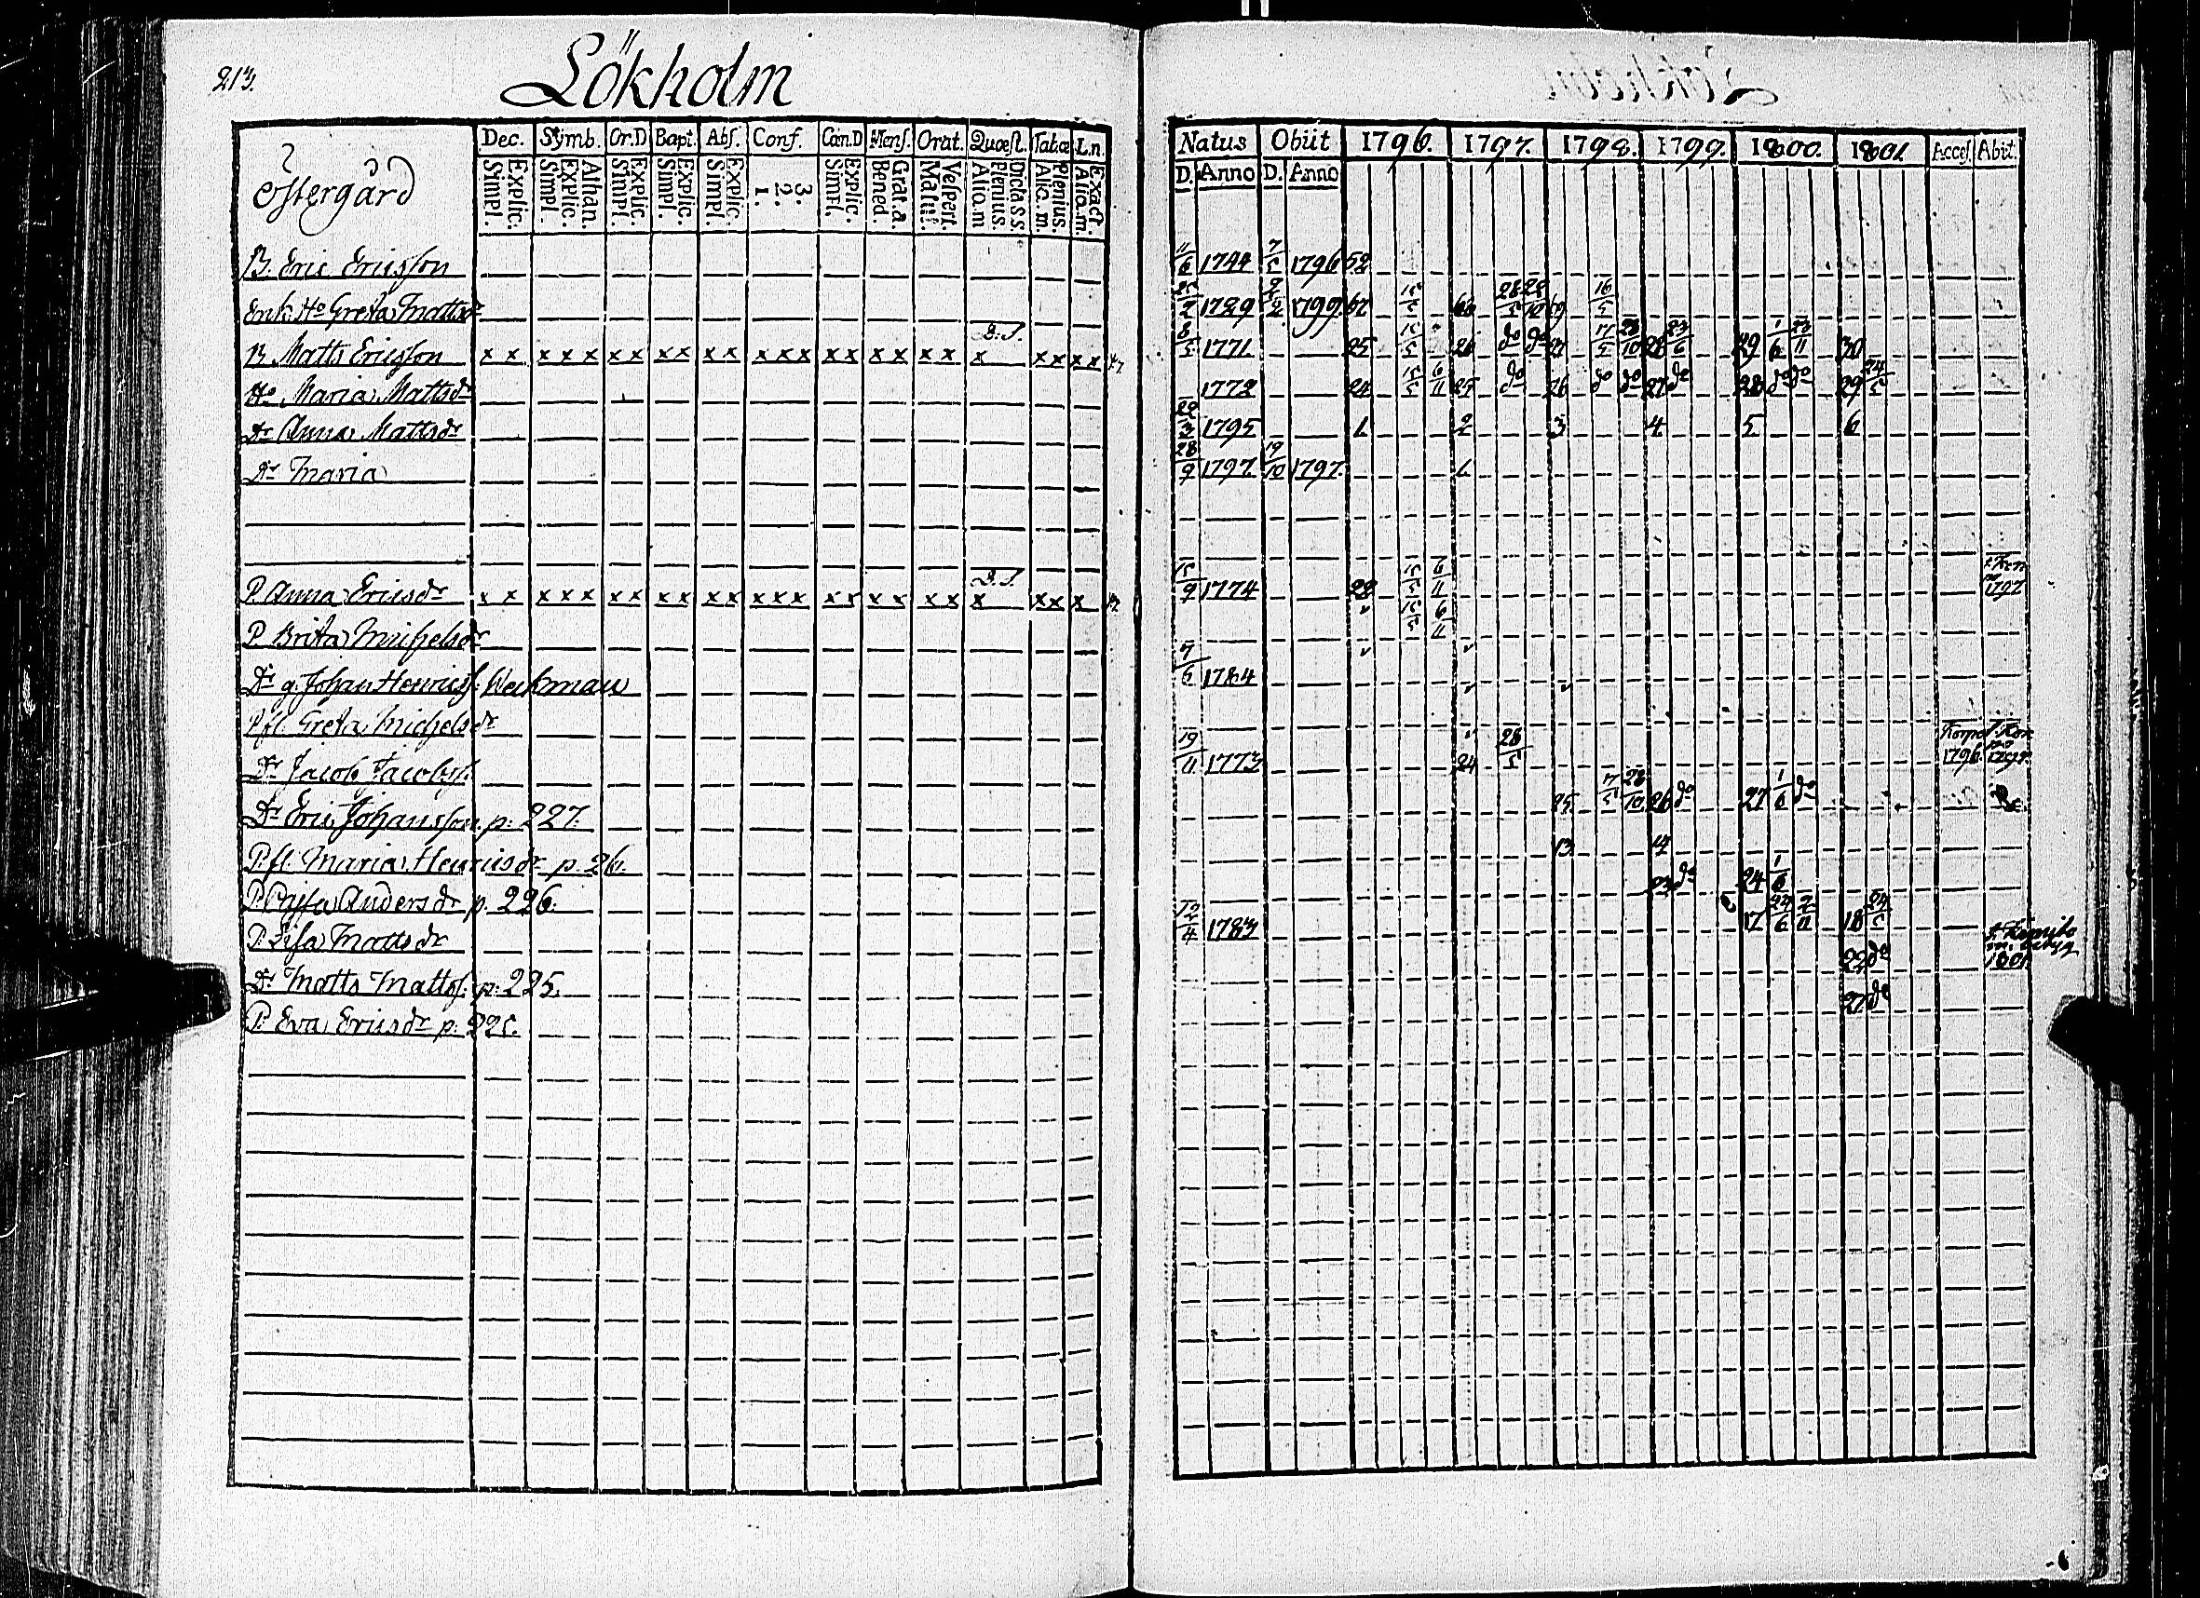 213.
Lökholm
Östergård
Dec. Symb. Or.D Bapt. Abs. Conf. Cœn.D Mens. Orat. Quæst. Tabæ Ln.
Explic. Simpl. Athan. Explic. Simpl. Explic. Simpl. Explic. Simpl. Explic. Simpl. 3. 2. 1. Explic. Simpl. Grat.a. Bened. Vespert. Matut. Dicta S S. Plenius. Aliq.m Plenius. Aliq.m. Exact. Aliq.m.
Natus Obiit 1796. 1797. 1798. 1799. 1800. 1801. Acces. Abit.
D. Anno D. Anno
B. Eric Ericsson 11/6 1744 7/5 1796 52
Enk. Ho Greta Mattsdr 1729 1799 67 15/5 16/5
D.S.
B. Matts Ericsson x x x x x x x x x x x x x x x x x x x x x x x x x 8/5 1771 25 15/5 26 do do 27 17/5 28/10 28 23/6 29 1/6 23/11 30
Ho Maria Mattsdr 1772 24 15/5 6/11 25 do 26 do do 27 do 28 do do 29 24/5
Dr Anna Mattsdr 1795 1. 2 3 4 5. 6
Dr Maria 28/9 1797. 19/10 1797. 1.
D.S.
P. Anna Ericsdr x x x x x x x x x x x x x x x x x x x x x x x x 15/9 1774 22 15/5 6/11 1797
P. Brita Michelsdr 15/5 6/11
Dr g. Johan Henricss. Weckman 7/6 1784
P. fl. Greta Michelsdr
Dr Jacob Jacobss. 19/11 1773 24 28/5 Korpo 1796.
Dr Eric Johansson p. 227. 25. 17/5 28/10 26 do 27 1/6 do
P. fl. Maria Henricsdr p. 26. 13. 14
P. Cajsa Andersdr p. 226. 23 do 24 1/6
P. Lisa Mattsdr 12/4 1783 17 2/11 18 24/5 t. Kimito 1801
Dr Matts Mattss. p. 225. 22 do
P. Eva Ericsdr p. 27 do